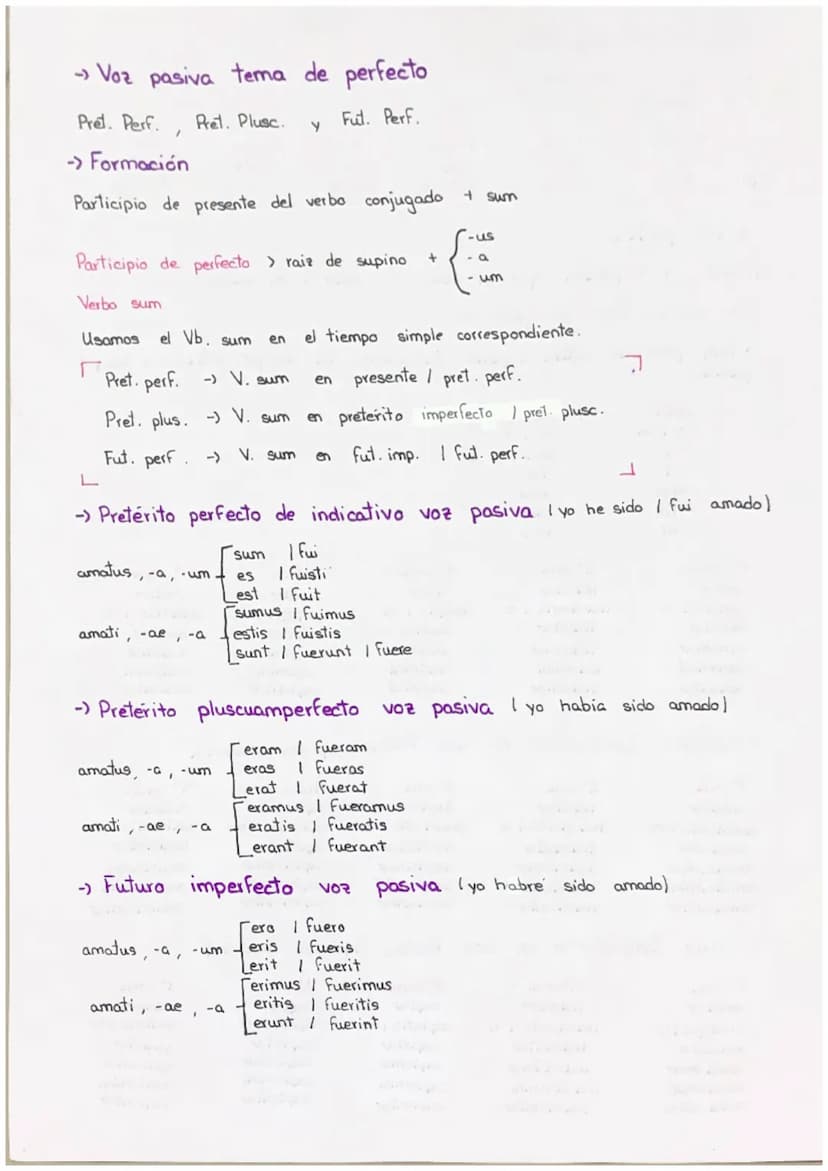 -> Voz pasiva tema de perfecto
Pret. Perf. , Pret. Plusc. y Fut. Perf.
-> Formación
Participio de presente del verbo conjugado + sum
Participio de perfecto > raiz de supino + { -us
- a
- um
Verbo sum
Usamos el Vb. sum en el tiempo simple correspondiente.
Pret. perf. -> V. sum en presente / pret. perf.
Pret. plus. -> V. sum en pretérito imperfecto / pret. plusc.
Fut. perf. -> V. sum en fut. imp. / fut. perf.
-> Pretérito perfecto de indicativo voz pasiva (yo he sido / fui amado)
sum / fui
amatus, -a, -um es / fuisti
est / fuit
sumus / fuimus
amati, -ae, -a estis / fuistis
sunt / fuerunt / fuere
-> Pretérito pluscuamperfecto voz pasiva (yo había sido amado)
eram / fueram
amatus, -a, -um eras / fueras
erat / fuerat
eramus / fueramus
amati, -ae, -a eratis / fueratis
erant / fuerant
-> Futuro imperfecto voz pasiva (yo habré sido amado)
ero / fuero
amatus, -a, -um eris / fueris
erit / fuerit
erimus / fuerimus
amati, -ae, -a eritis / fueritis
erunt / fuerint